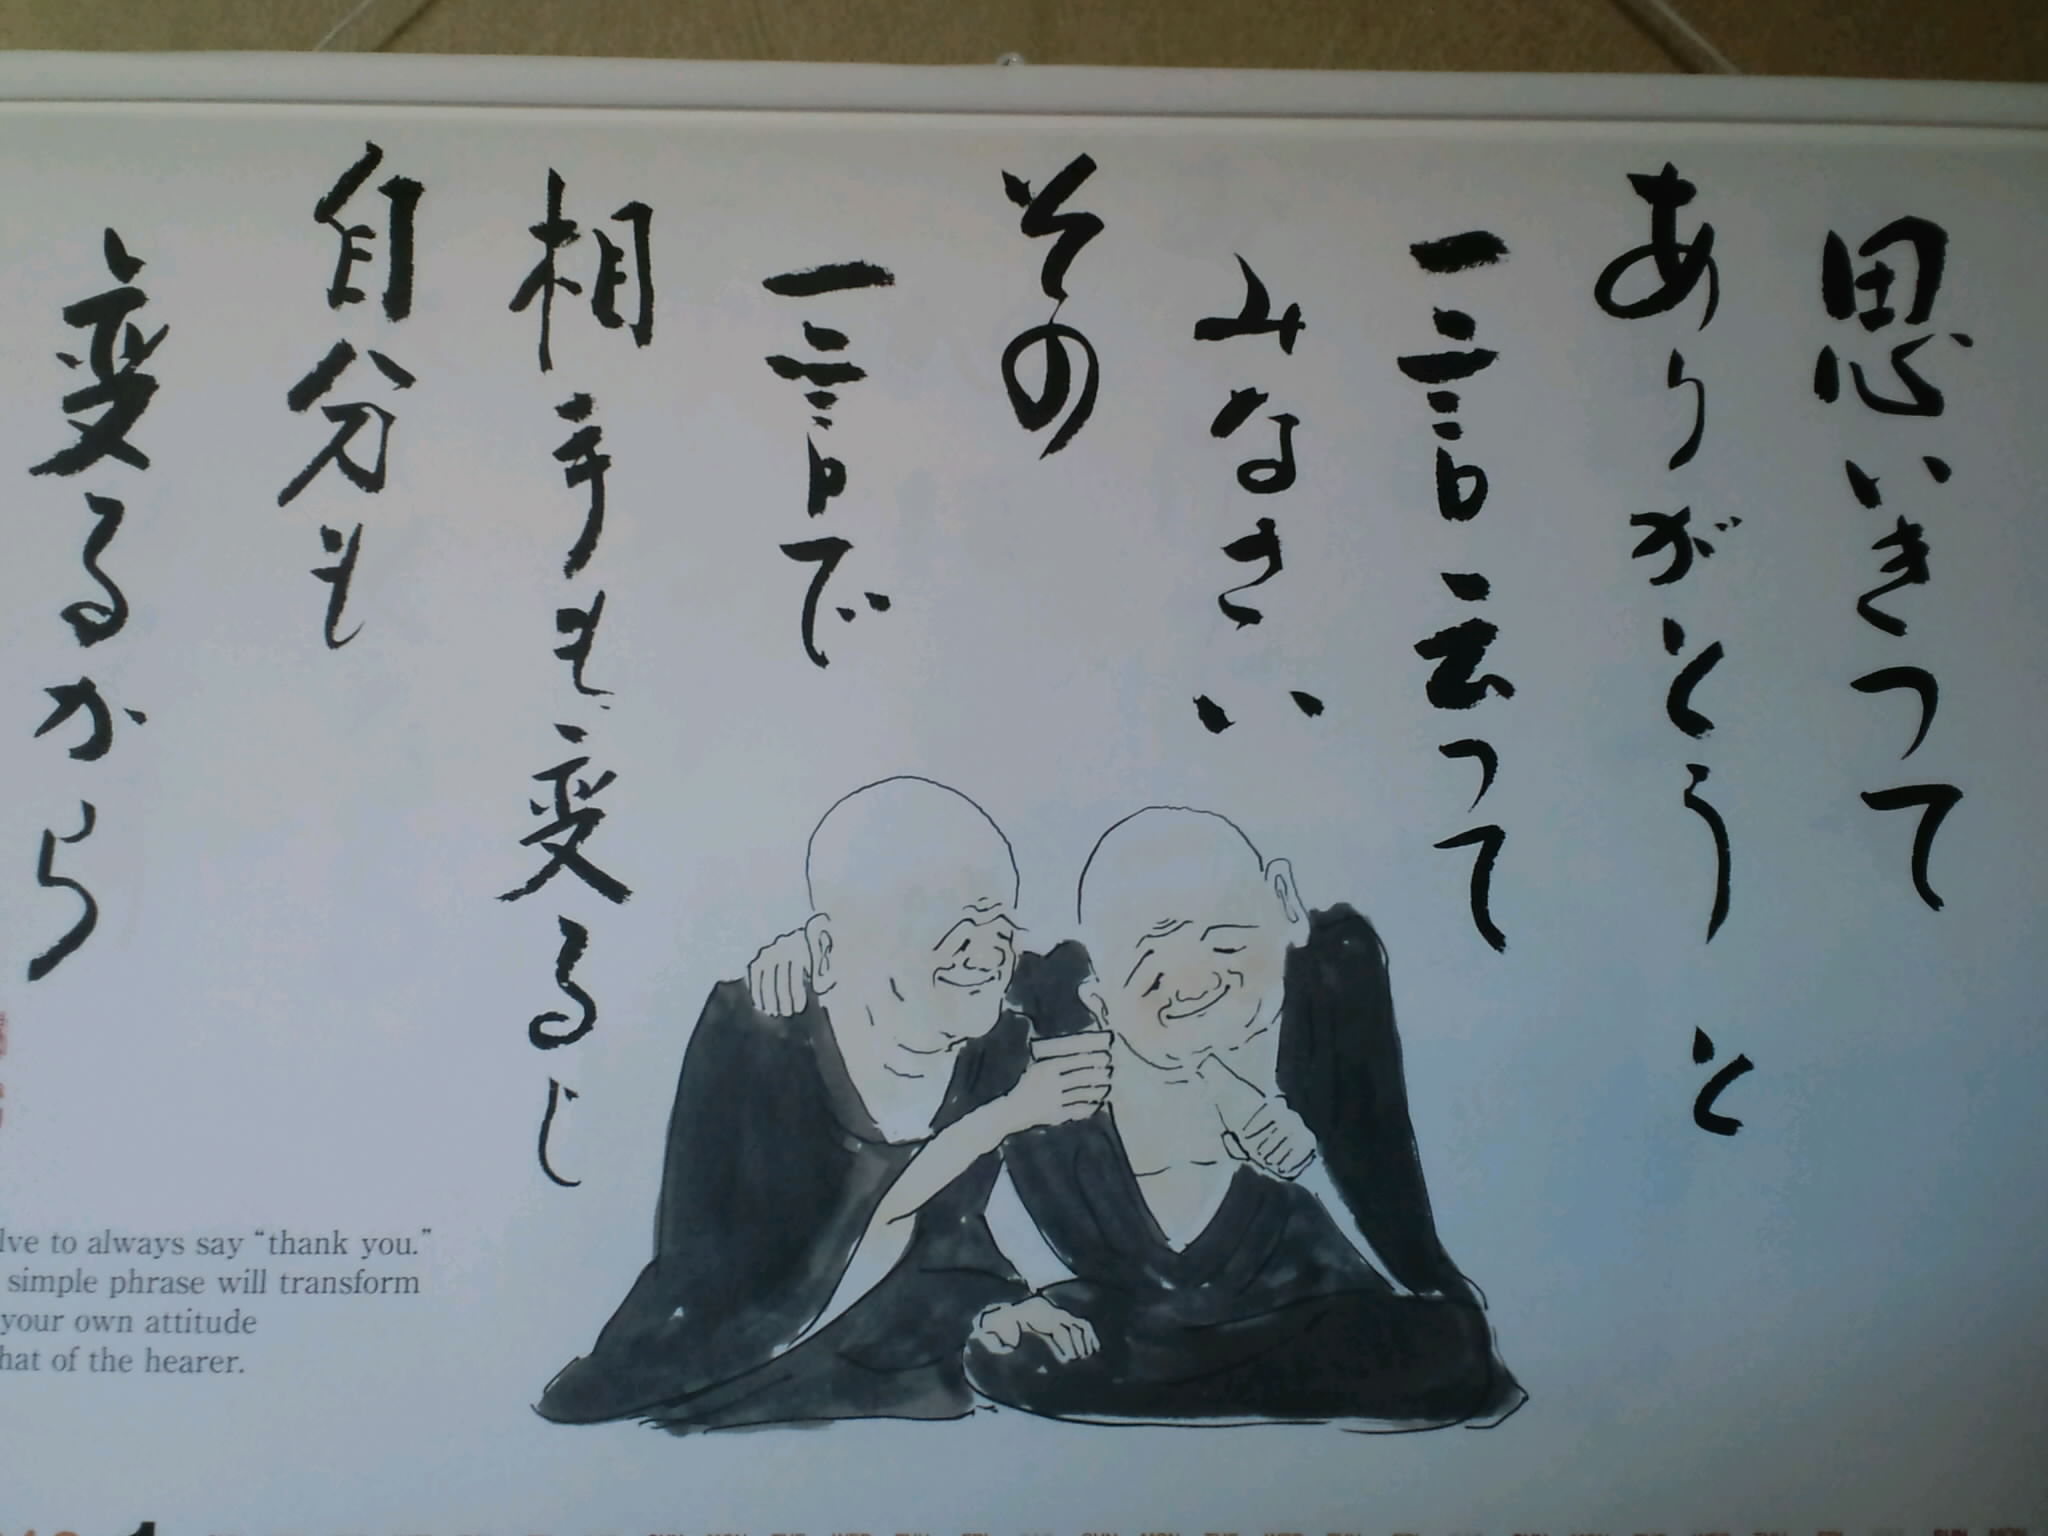 思いきって
ありがとうと
一言云って
みなさい
その
一言で
相手も変るし
自分も
変るから
lve to always say “thank you.”
simple phrase will transform
your own attitude
hat of the hearer.